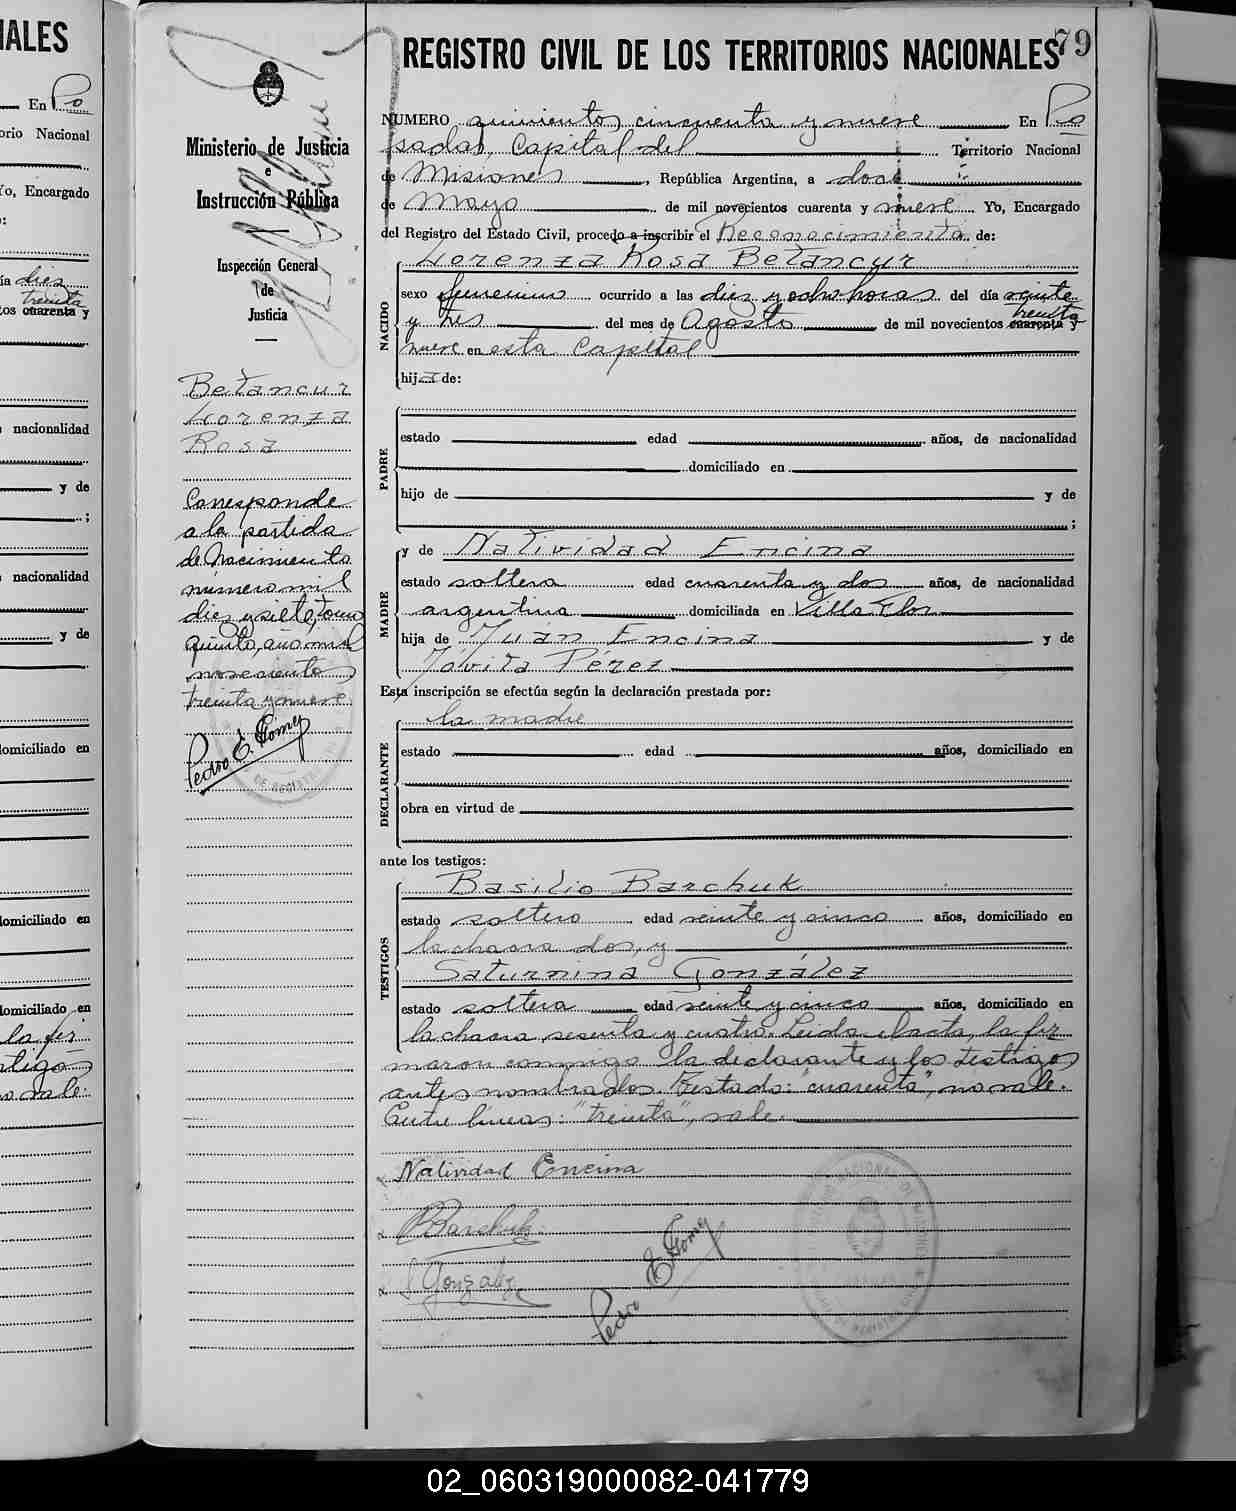 IALES
En Po
orio Nacional
Yo, Encargado
o:
ía diez
treinta
tos cuarenta y
nacionalidad
y de
;
nacionalidad
y de
domiciliado en
domiciliado en
domiciliado en
la fir
tigos
no vale.
Ministerio de Justicia
e
Instrucción Pública
Inspección General
de
Justicia
Betancur
Lorenza
Rosa
Corresponde
a la partida
de Nacimiento
número mil
diez y siete, tomo
quinto, año mil
novecientos
treinta y nueve
Pedro E. Gomez
79
REGISTRO CIVIL DE LOS TERRITORIOS NACIONALES
NUMERO quinientos cincuenta y nueve En Po
sadas, Capital del Territorio Nacional
de Misiones, República Argentina, a doce
de Mayo de mil novecientos cuarenta y nueve Yo, Encargado
del Registro del Estado Civil, procedo a inscribir el Reconocimiento de:
NACIDO
Lorenza Rosa Betancur
sexo femenino ocurrido a las diez y ocho horas del día veinte
treinta
y tres del mes de Agosto de mil novecientos cuarenta y
nueve en esta Capital
hija de:
PADRE
estado edad años, de nacionalidad
domiciliado en
hijo de y de
;
MADRE
y de Natividad Encina
estado soltera edad cuarenta y dos años, de nacionalidad
argentina domiciliada en Villa Flor
hija de Juán Encina y de
Jóvita Pérez
Esta inscripción se efectúa según la declaración prestada por:
DECLARANTE
la madre
estado edad años, domiciliado en
obra en virtud de
ante los testigos:
TESTIGOS
Basilio Barchuk
estado soltero edad veinte y cinco años, domiciliado en
la chacra dos, y
Saturnina González
estado soltera edad veinte y cinco años, domiciliado en
la chacra sesenta y cuatro. Leida el acta, la fir
maron conmigo la declarante y los testigos
antes nombrados. Testado: "cuarenta", no vale.
Entre líneas: "treinta", vale.
Natividad Encina
B Barchuk
S Gonzalez
Pedro E Gomez
02_060319000082-041779